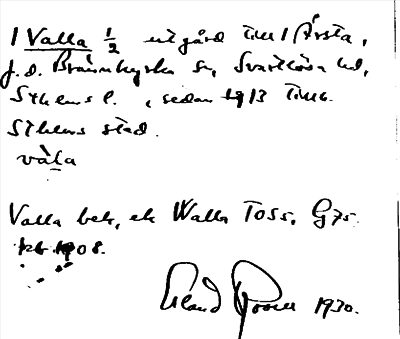 1 Valla ½ utgård till 1 Årsta,
f. d. Brännkyrka sn, Svartlösa hd,
Sthems l. , sedan 1913 till
Sthems stad.
vàla
Valla bek, ek Walla Toss. G75
1908.
Erland 1930.